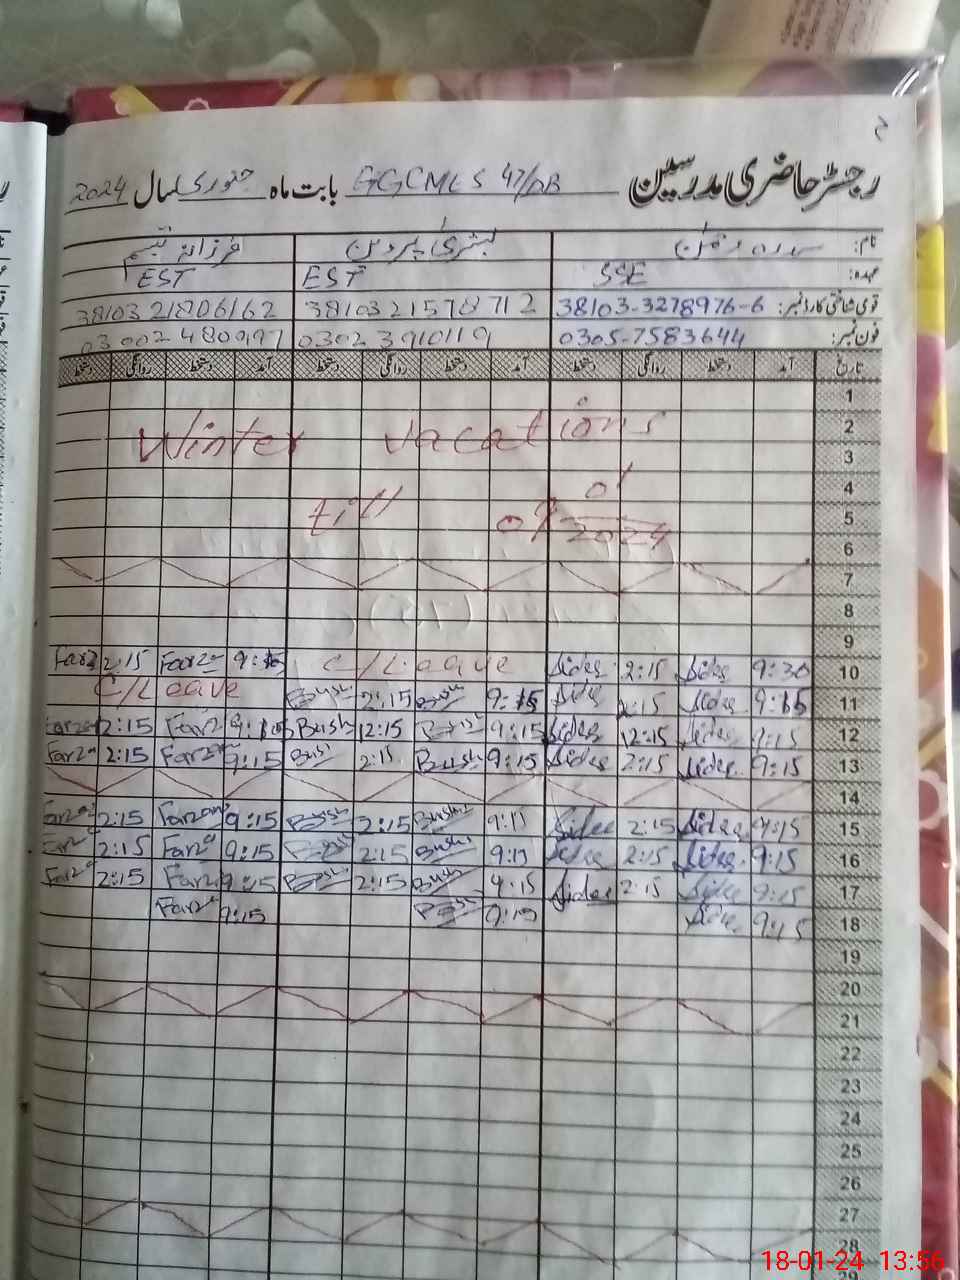 رجسٹر حاضری مدرسین GGCMES 47/DB بابت ماہ جنوری سال 2024
نام: سدرہ بشریٰ پروین فرزانہ
عہدہ: SSE EST EST
قومی شناختی کارڈ نمبر: 38103-3278976-6 3810321578712 3810321806162
فون نمبر: 0305-7583644 03023910119 03002480997
تاریخ آمد دستخط روانگی دستخط آمد دستخط روانگی دستخط آمد دستخط روانگی دستخط
1
2
Winter vacations
3
4
till 09/01/2024
5
6
7
8
9
Farz 2:15 Farz 9:15 C/Leave Sidra 2:15 Sidra 9:30 10
C/Leave Bush 2:15 Bush 9:15 Sidra 2:15 Sidra 9:15 11
Farz 12:15 Farz 9:15 Bush 12:15 Bush 9:15 Sidra 12:15 Sidra 9:15 12
Farz 2:15 Farz 9:15 Bush 2:15 Bush 9:15 Sidra 2:15 Sidra 9:15 13
14
Farz 2:15 Farzan 9:15 Bush 2:15 Bush 9:15 Sidra 2:15 Sidra 9:15 15
Farz 2:15 Farz 9:15 Bush 2:15 Bush 9:15 Sidra 2:15 Sidra 9:15 16
Farz 2:15 Farz 9:15 Bush 2:15 Bush 9:15 Sidra 2:15 Sidra 9:15 17
Farz 9:15 Bush 9:15 Sidra 9:15 18
19
20
21
22
23
24
25
26
27
28
29
18-01-24 13:56